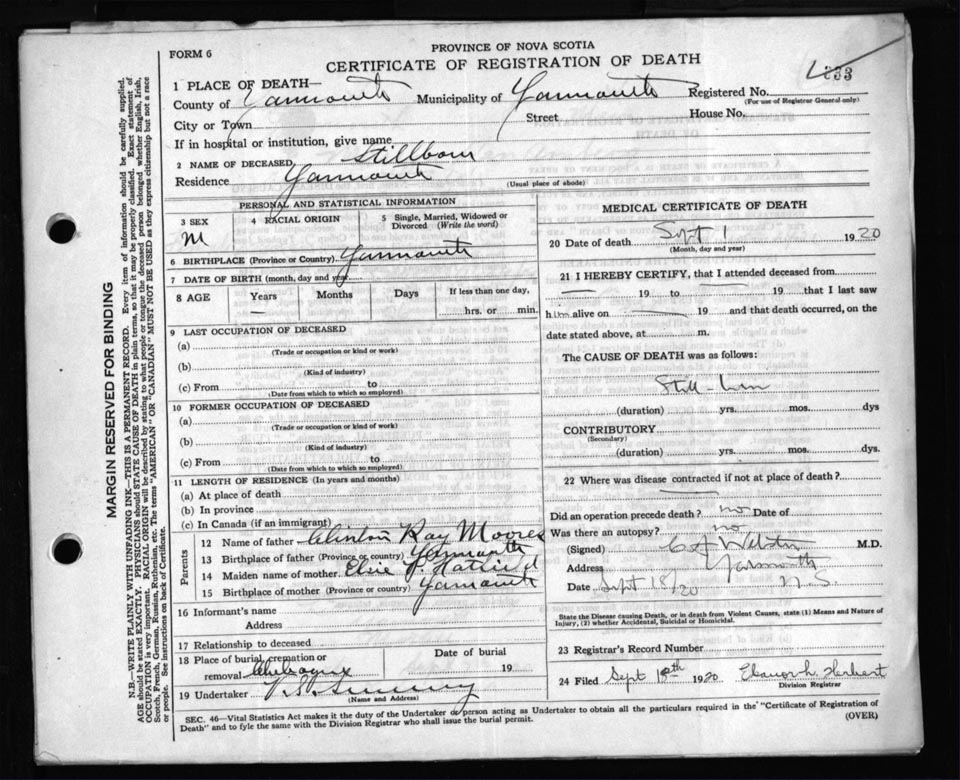 FORM 6
PROVINCE OF NOVA SCOTIA
CERTIFICATE OF REGISTRATION OF DEATH
333
1 PLACE OF DEATH—
County of Yarmouth Municipality of Yarmouth Registered No.
(For use of Registrar General only)
City or Town Street House No.
If in hospital or institution, give name
2 NAME OF DECEASED Stillborn
Residence Yarmouth
(Usual place of abode)
PERSONAL AND STATISTICAL INFORMATION
3 SEX
M
4 RACIAL ORIGIN
5 Single, Married, Widowed or
Divorced (Write the word)
6 BIRTHPLACE (Province or Country) Yarmouth
7 DATE OF BIRTH (month, day and year)
8 AGE Years Months Days If less than one day,
— hrs. or min.
9 LAST OCCUPATION OF DECEASED
(a)
(Trade or occupation or kind or work)
(b)
(Kind of industry)
(c) From to
(Date from which to which so employed)
10 FORMER OCCUPATION OF DECEASED
(a)
(Trade or occupation or kind or work)
(b)
(Kind of industry)
(c) From to
(Date from which to which so employed)
11 LENGTH OF RESIDENCE (In years and months)
(a) At place of death
(b) In province
(c) In Canada (if an immigrant)
Parents
12 Name of father Clinton Ray Moores
13 Birthplace of father (Province or country) Yarmouth
14 Maiden name of mother Elsie P. Hatfield
15 Birthplace of mother (Province or country) Yarmouth
16 Informant's name
Address
17 Relationship to deceased
18 Place of burial, cremation or
removal Chebogue
Date of burial
19
19 Undertaker
(Name and Address)
MEDICAL CERTIFICATE OF DEATH
20 Date of death Sept 1 1920
(Month, day and year)
21 I HEREBY CERTIFY, that I attended deceased from
19 to 19 that I last saw
him alive on 19 and that death occurred, on the
date stated above, at m.
The CAUSE OF DEATH was as follows:
Still-born
(duration) yrs. mos. dys
CONTRIBUTORY
(Secondary)
(duration) yrs. mos. dys.
22 Where was disease contracted if not at place of death?
Did an operation precede death? no Date of
Was there an autopsy? no
(Signed) C A Webster M.D.
Address Yarmouth
Date Sept 18/20 N.S.
State the Disease causing Death, or in death from Violent Causes, state (1) Means and Nature of
Injury, (2) whether Accidental, Suicidal or Homicidal.
23 Registrar's Record Number
24 Filed Sept 18th 1920 Eleanor L. Herbert
Division Registrar
SEC. 46—Vital Statistics Act makes it the duty of the Undertaker or person acting as Undertaker to obtain all the particulars required in the "Certificate of Registration of
Death" and to fyle the same with the Division Registrar who shall issue the burial permit.
(OVER)
MARGIN RESERVED FOR BINDING
N.B.—WRITE PLAINLY WITH UNFADING INK—THIS IS A PERMANENT RECORD. Every item of information should be carefully supplied.
AGE should be stated EXACTLY. PHYSICIANS should STATE CAUSE OF DEATH in plain terms, so that it may be properly classified. Exact statement of
OCCUPATION is very important. RACIAL ORIGIN will be described by stating to what people or tongue the deceased person belonged whether English, Irish,
Scotch, French, German, Russian, Ruthenian, etc. The terms "AMERICAN" OR "CANADIAN" MUST NOT BE USED as they express citizenship but not a race
or people. See instructions on back of Certificate.